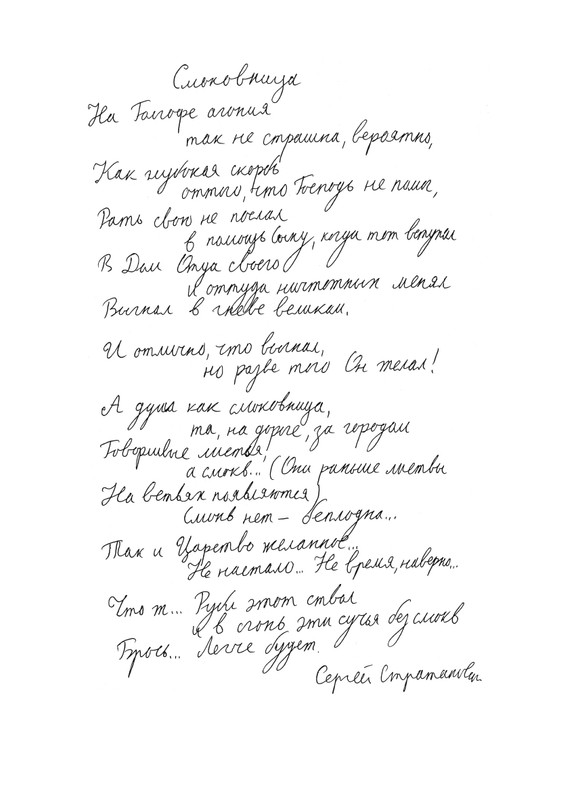 Смоковница
На Голгофе агония
так не страшна, вероятно,
Как глубокая скорбь
оттого, что Господь не помог,
Рать свою не послал
в помощь Сыну, когда тот вступал
В Дом Отца своего
и оттуда ничтожных менял
Выгнал в гневе великом.
И отлично, что выгнал,
но разве того Он желал!
А душа как смоковница,
та, на дороге, за городом
Говорливые листья,
а смокв... (Они раньше листвы
На ветвях появляются)
Смокв нет – бесплодна...
Так и Царство желанное...
Не настало... Не время, наверно...
Что ж... Руби этот ствол
и в огонь эти сучья без смокв
Брось... Легче будет.
Сергей Стратановский